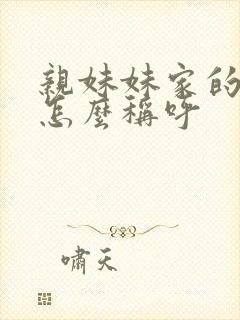 親妹妹家的
怎麼稱呼
嘯天